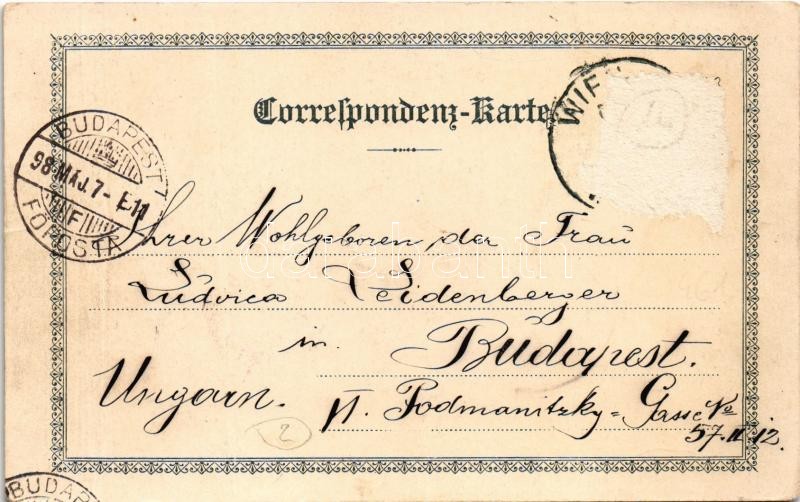 Correspondenz-Karte
WIEN
BUDAPEST
98 MÁJ. 7 - E 11
F
FŐPOSTA
Ihrer Wohlgeboren der Frau
Ludvica Seidenberger
in
Budapest.
Ungarn.
VI. Podmanitzky-Gasse No
57. II 12.
2
darabanth
BUDAP